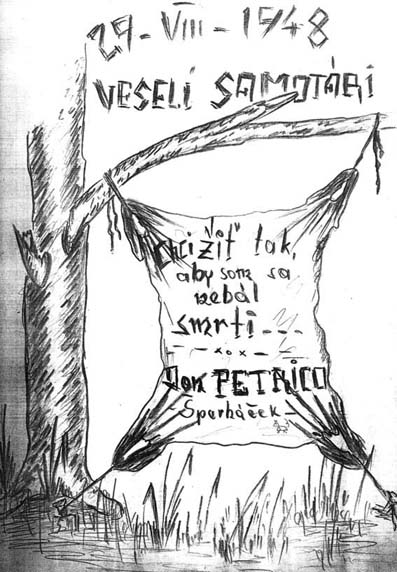 29-VIII-1948
VESELÍ SAMOTÁRI
Chci žiť tak,
aby som sa
nebál
smrti---
--xox--
Don PETRÍCO
-Sparháček-